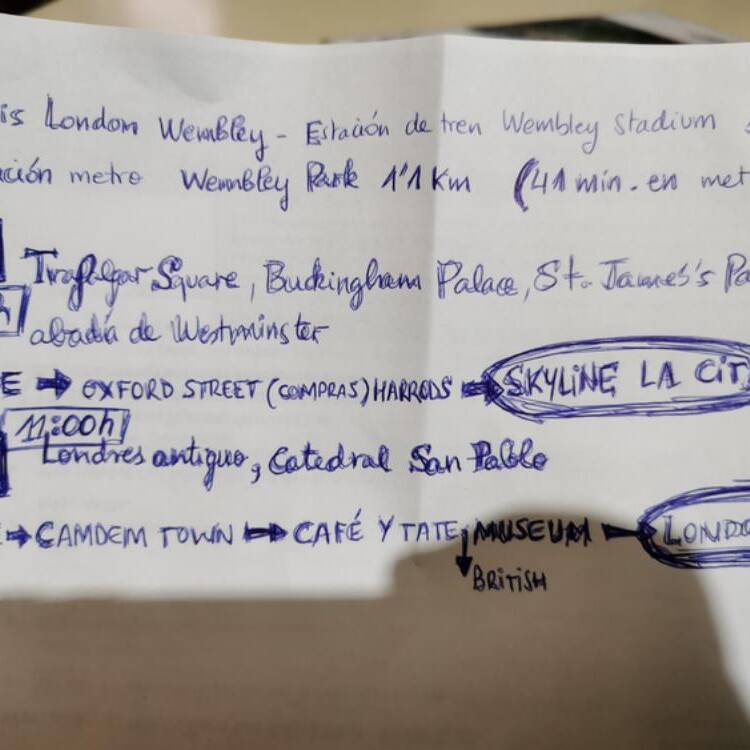 is London Wembley - Estación de tren Wembley Stadium
ación metro Wembley Park 1'1 Km (41 min. en met
Trafalgar Square, Buckingham Palace, St. James's Pa
abadía de Westminster
E → OXFORD STREET (COMPRAS) HARRODS → SKYLINE LA CIT
11:00h
Londres antiguo, Catedral San Pablo
E → CAMDEM TOWN → CAFÉ Y TATE, MUSEUM → LONDO
BRITISH